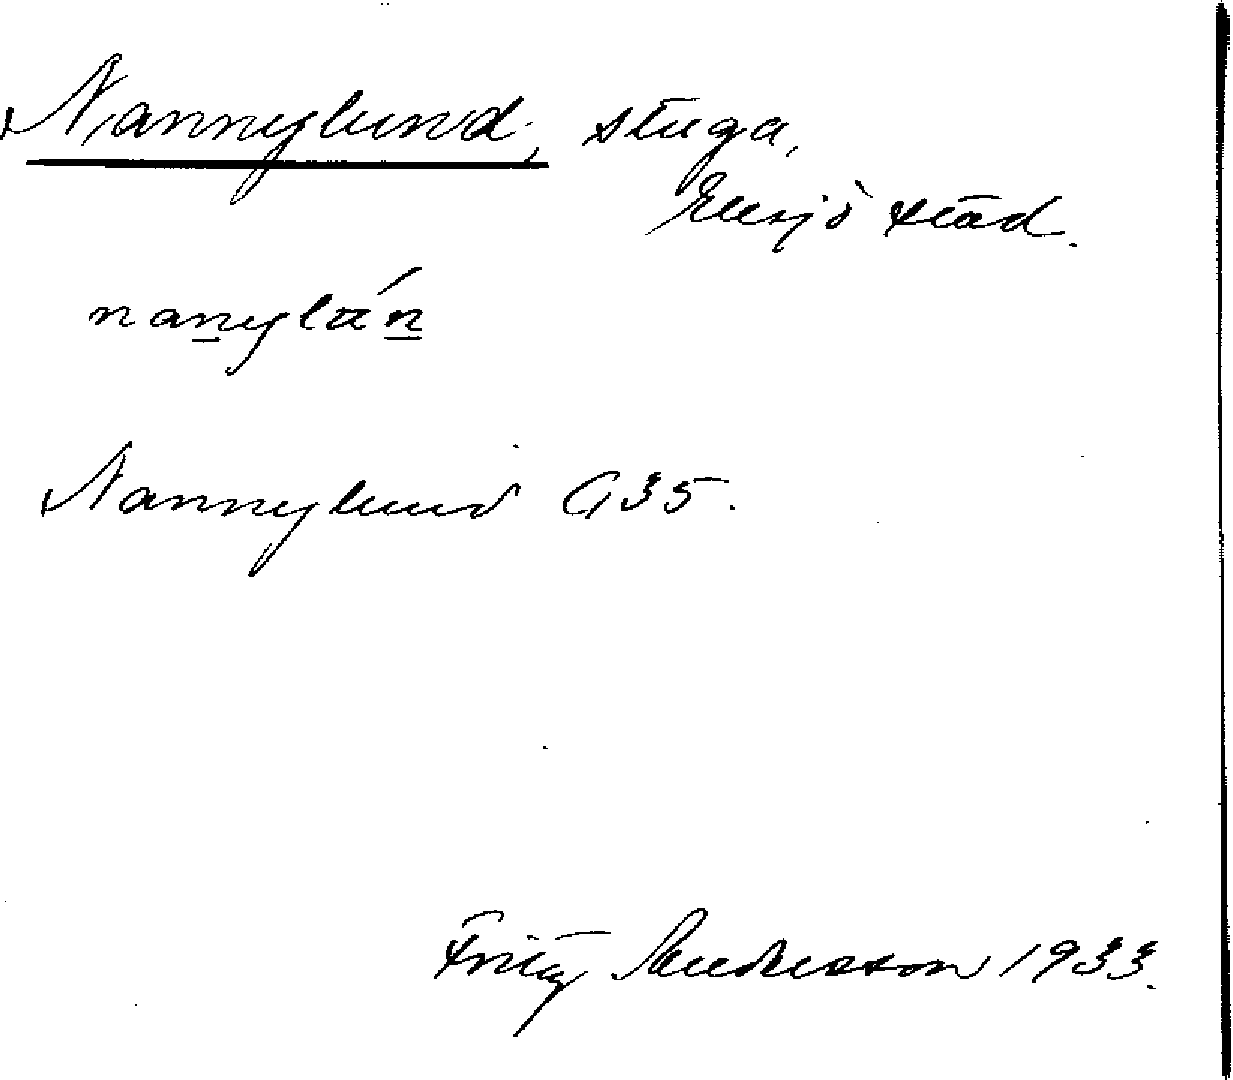 Nannylund, stuga,
Eksjö stad.
nanylán
Nannylund G35.
Fritz Andersson 1933.